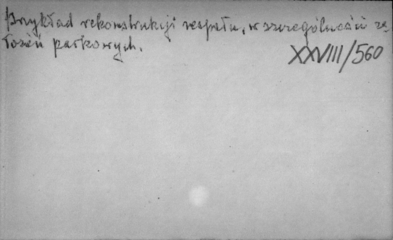 Przykład rekonstrukcji zespołu, w szczególności za-
łożeń parkowych.
XXVIII/560